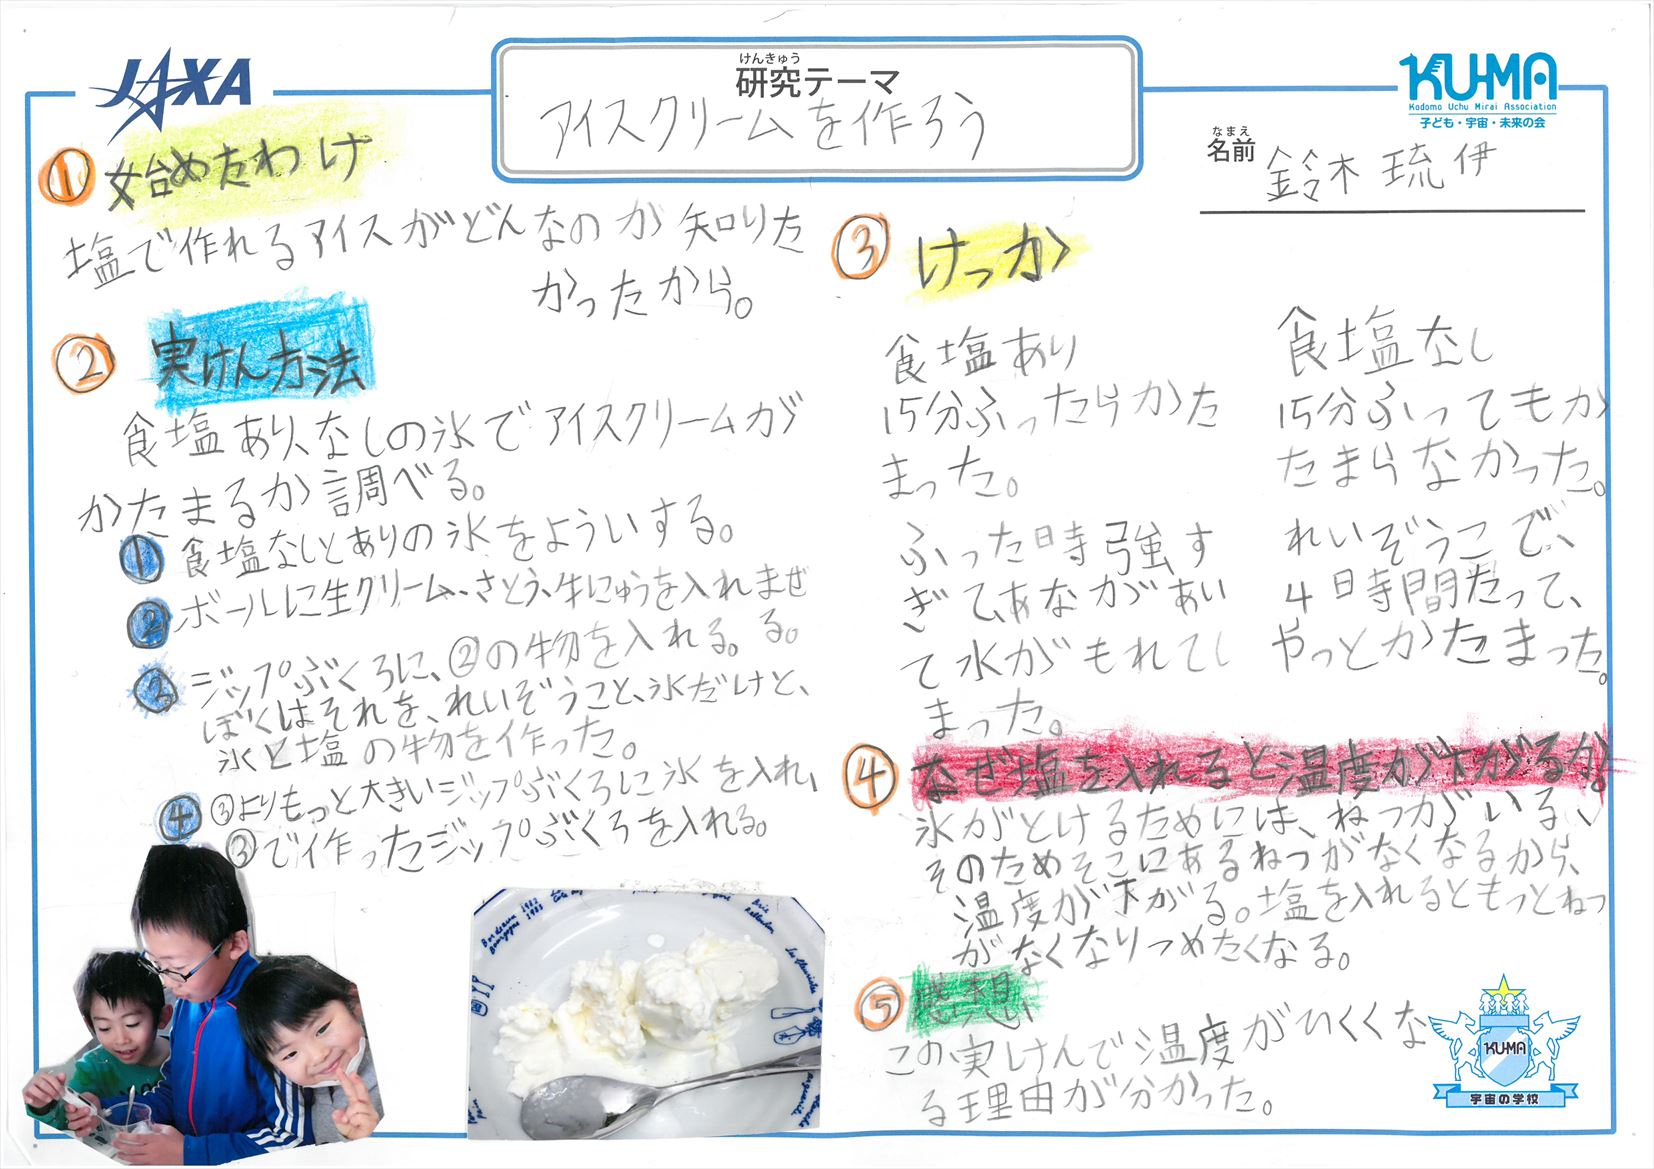 JAXA
けんきゅう
研究テーマ
アイスクリームを作ろう
KU-MA
Kodomo Uchu Mirai Association
子ども・宇宙・未来の会
なまえ
名前
鈴木 琉伊
① 始めたわけ
塩で作れるアイスがどんなのか知りた
かったから。
② 実けん方法
食塩あり、なしの氷でアイスクリームが
かたまるか調べる。
① 食塩なしとありの氷をよういする。
② ボールに生クリーム、さとう、牛にゅうを入れまぜ
る。
③ ジップぶくろに、②の物を入れる。
ぼくはそれを、れいぞうこと、氷だけと、
氷と塩の物を作った。
④ ③よりもっと大きいジップぶくろに氷を入れ、
③で作ったジップぶくろを入れる。
③ けっか
食塩あり
15分ふったらかた
まった。
ふった時強す
ぎて、あながあい
て水がもれてし
まった。
食塩なし
15分ふってもか
たまらなかった。
れいぞうこで、
4日時間たって、
やっとかたまった。
④ なぜ塩を入れると温度が下がるか。
氷がとけるためには、ねつがいる、
そのためそこにあるねつがなくなるから、
温度が下がる。塩を入れるともっとねつ
がなくなりつめたくなる。
⑤ 感想
この実けんで温度がひくくな
る理由が分かった。
KU-MA
宇宙の学校